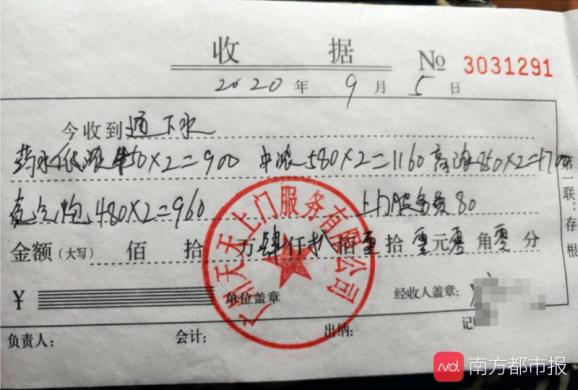 收 据
№ 3031291
2020 年 9 月 5 日
今收到 通下水
药水低浓450×2=900 中浓580×2=1160 高浓850×2=1700
氧气炮480×2=960 上门服务费80
金额(大写) 佰 拾 万肆仟捌佰零拾零元零角零分
¥ 单位盖章 经收人盖章:
负责人: 会计: 出纳: 记
第一联:存根
广州天天上门服务有限公司
南方都市报